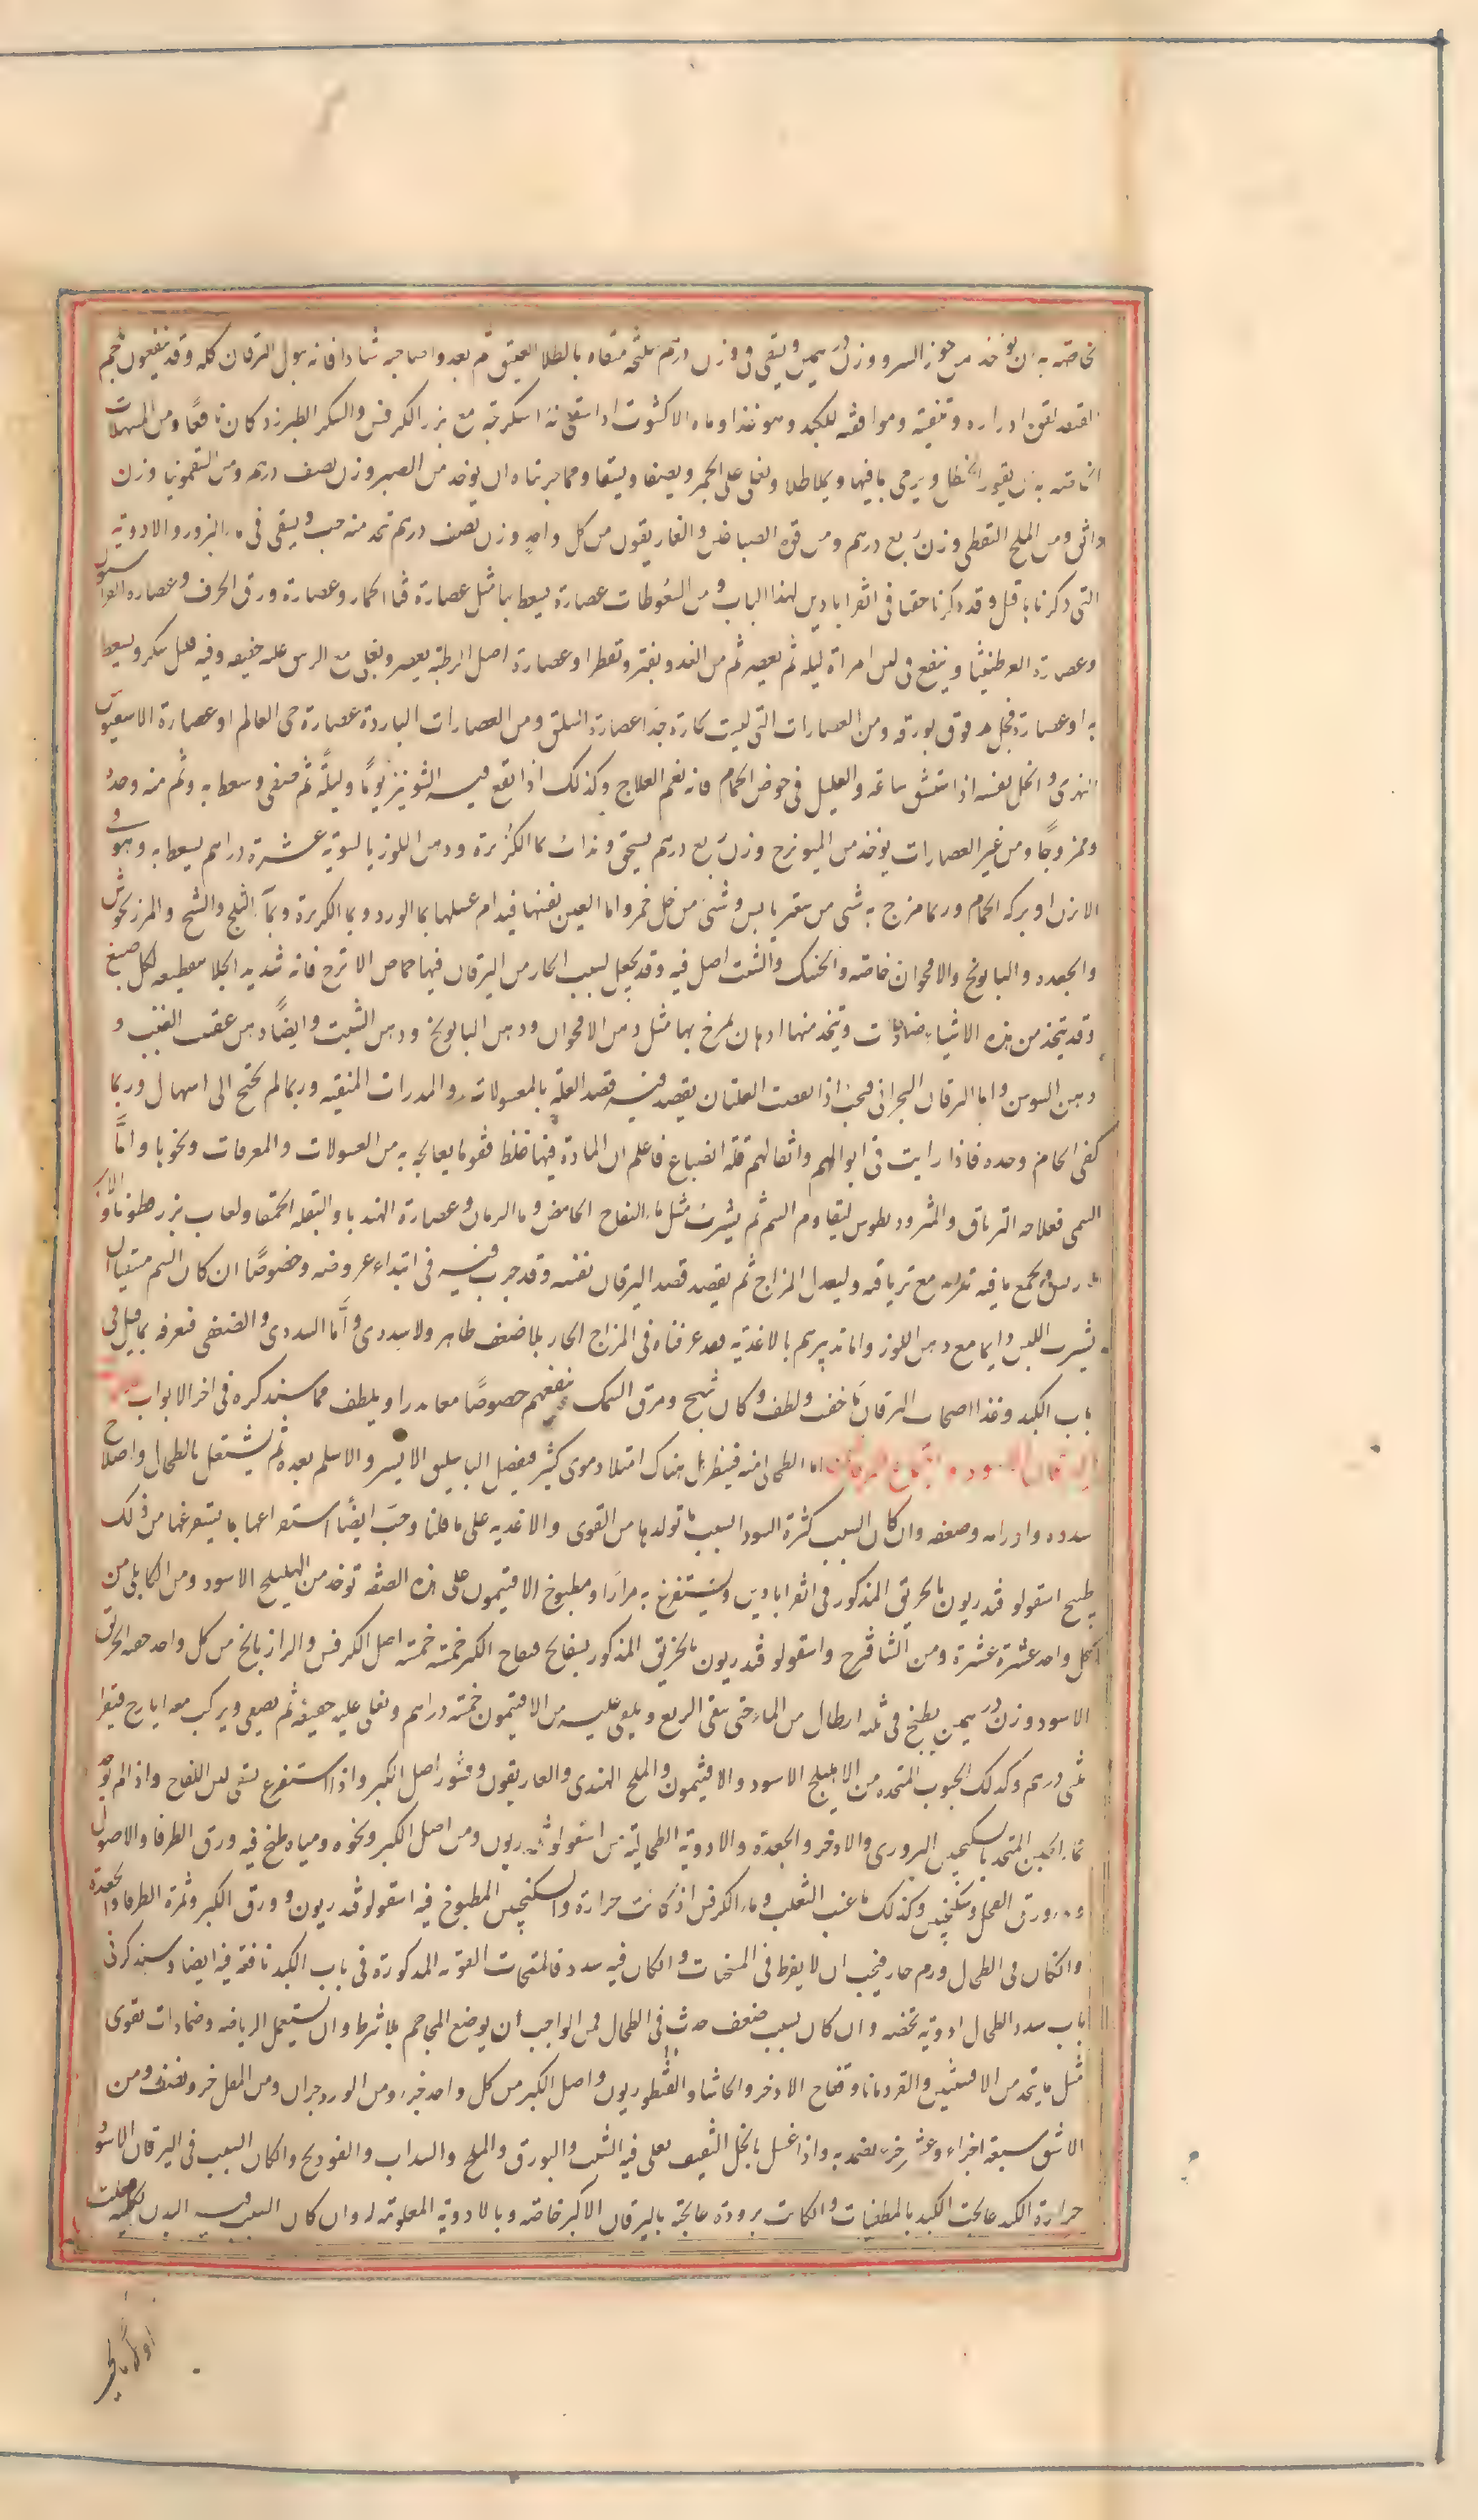 خاصته به ان يوخذ من جوز السرو وزن درهمين ويسقى وزن درهم ثلثة مثقاه بالطلا العتيق ثم بعدو صاحبه شادا فانه يبول اليرقان كله وقد ينفعون بحجم
القنفد لقوة ادراره وتنقيته وموافقته للكبد وهو غذا وماء الاكشوث اذا استقى منه اسكرجة مع بزر الكرفس والسكر الطبرزد كان نافعًا ومن المسهلات
الخاصة به ان يقور الحنظل ويرمى بما فيها ويملا طلا ويغلى على الجمر ويصفا ويسقا ومما جربناه ان يوخذ من الصبر وزن نصف درهم ومن السقمونيا وزن
دانق ومن الملح النفطى وزن ربع درهم ومن قوة الصباغين والغاريقون من كل واحدٍ وزن نصف درهم تتخذ منه حب ويسقى فى ماء البزور والادوية
التى ذكرناها قبل وقد ذكرنا حقنا فى اقراباذين لهذا الباب ومن السعوطات عصارة يسعط بها مثل عصارة قثا الحمار وعصارة ورق الحرف وعصاره
وعصارة العرطنيثا وينقع فى لبن امراة ليله ثم يعصر ثم من الغد ويفتر وتقطر او عصارة اصل الرطبة يعصر ويغلى مع قليل سكر ويسعط
به او عصارة فجل مدقوق بورقه ومن العصارات التى ليست بحارة جدًا عصارة السلق ومن العصارات الباردة عصارة حى العالم او عصارة
الهندى والخل نفسه اذا استنشق ساعة والعليل فى حوض الحمام فانه نعم العلاج وكذلك اذا نقع فيه الشونيز يومًا وليلةً ثم صفى وسعط به وشم منه وحده
وممزوجًا ومن غير العصارات يوخذ من الميويزج وزن ربع درهم يسحق ويذاب بماء الكزبرة ودهن اللوز بالسوية عشرة دراهم يسعط به وهو فى
الابزن او بركة الحمام وربما مزج به شى من سقمونيا وشئ من خل خمر واما العين نفسها فيدام غسلها بماء الورد وبماء الكزبرة وبماء الثلج والشيح والمرزنجوش
والجعده والبابونج والاقحوان خاصته والحسك والشبث اصل فيه وقد يجعل لسبب الحار من اليرقان فيها حماض الاترج فانه شديد الجلا بتقطيعه لكل صبغ
وقد يتخذ من هذه الاشياء ضمادات ويتخذ منها ادهان يمرخ بها مثل دهن الاقحوان ودهن البابونج ودهن الشبت وايضًا دهن عقيد العنب و
دهن السوسن واما اليرقان البحرانى فيجب اذا انقضت العلتان يقصد فيه قصد العلة بالمغسولات والمدرات المنقيه وربما لم يحتج الى اسهال وربما
كفى الحام وحده فاذا رايت فى ابوالهم واثفالهم قلة انصباغ فاعلم ان المادة فيها غلظ فقو ما يعالج به من الغسولات والمعرقات ونحوها وامّا
السمى فعلاجه الترياق والمثروديطوس ليقاوم السم ثم يشرب مثل ماء التفاح الحامض وماء الرمان وعصارة الهندبا والبقلة الحمقا ولعاب بزر قطونا
ويجمع ما فيه تبريد مع ترياقية وليعدل المزاج ثم يقصد قصد اليرقان نفسه وقد جرب فيه فى ابتداء عروضه وخصوصًا ان كان السم
شرب اللبن دايما مع دهن اللوز واما تدبيرهم بالاغذية بعد عرفناه فى المزاج الحار بلا ضعف ظاهر ولا سددى واَما السددى والضعفى فتعرفه بما قيل فى
باب الكبد وغذا اصحاب اليرقان ما خفف ولطف وكان شبح ومرق السمك ينفعهم خصوصًا معامدرا ويلطف مما سنذكره فى اخر الابواب
اما الطحالى منه فينظر هل هناك امتلا دموى كثير فيفصد الباسليق الايسر والاسلم بعده ثم يشتغل بالطحال واصلاح
سدده واورامه وضعفه وان كان السبب كثرة السودا لسبب ما تولدها من القوى والاغذيه على ما قلنا وجب ايضًا استفراغها بما يستفرغها من ذلك
طبيخ اسقولوقندريون بالخربق المذكور فى اقراباذين ويستفرغ به مرارًا ومطبوخ الافتيمون على هذه الصفة توخذ من الهليلج الاسود ومن الكابلى من
كل واحد عشرة عشرة ومن الشاهترج واسقولوقندريون بالخربق المذكور بسفايج فقاح الكبر خمسة خمسة اصل الكرفس والرازيانج من كل واحد حفنه الخربق
الاسود وزن درهمين يطبخ فى ثلثه ارطال من الماء حتى يبقى الربع ويلقى عليه من الافتيمون خمسة دراهم ويغلى عليه خفيفه ثم يصفى ويركب معه ايارج فيقرا
ثلثى درهم وكذلك الحبوب المتخذه من الاهليلج الاسود والافتيمون والملح الهندى والغاريقون وقشور اصل الكبر واذا استفرغ سقى لبن اللقاح واذا لم توجد
فماء الجبن المتخذ بالسكنجبين البزورى والاذخر والجعدة والادوية الطحالية من اسقولوقندريون ومن اصل الكبر ونحوه ومياه طبخ فيه ورق الطرفا والاصول
وماء ورق الفجل وسكنجبين وكذلك ماء عنب الثعلب وماء الكرفس اذ كانت حرارة والسكنجبين المطبوخ فيه اسقولوقندريون وورق الكبر وثمرة الطرفا والجعدة
وان كان فى الطحال ورم حار فيجب ان لا يفرط فى المسخنات وان كان فيه سدد فالمفتحات القويه المذكورة فى باب الكبد نافعة فيه ايضا وسنذكر فى
باب سدد الطحال ادوية تخصه وان كان لسبب ضعف حدث فى الطحال فمن الواجب أن يوضع المحاجم بلا شرط وان يستعمل الرياضه وضمادات تقوى
مثل ما يتخذ من الافسنتين والقردمانا وفقاح الاذخر والحاشا والقنطوريون واصل الكبر من كل واحد جزء ومن الورد جزان ومن المقل جزو ونصف ومن
الاشق سبعة اجزاء وعشر جزء يضمد به واذا غسل بالخل الثقيف يغلى فيه الشب والبورق والملح والسداب والفودنج وان كان السبب فى اليرقان الاسود
حرارة الكبد عالجت الكبد بالمطفيات وان كانت برودة عالجته باليرقان الاكبر خاصته وبالادوية المعلومة له وان كان السبب فيه البدن كله